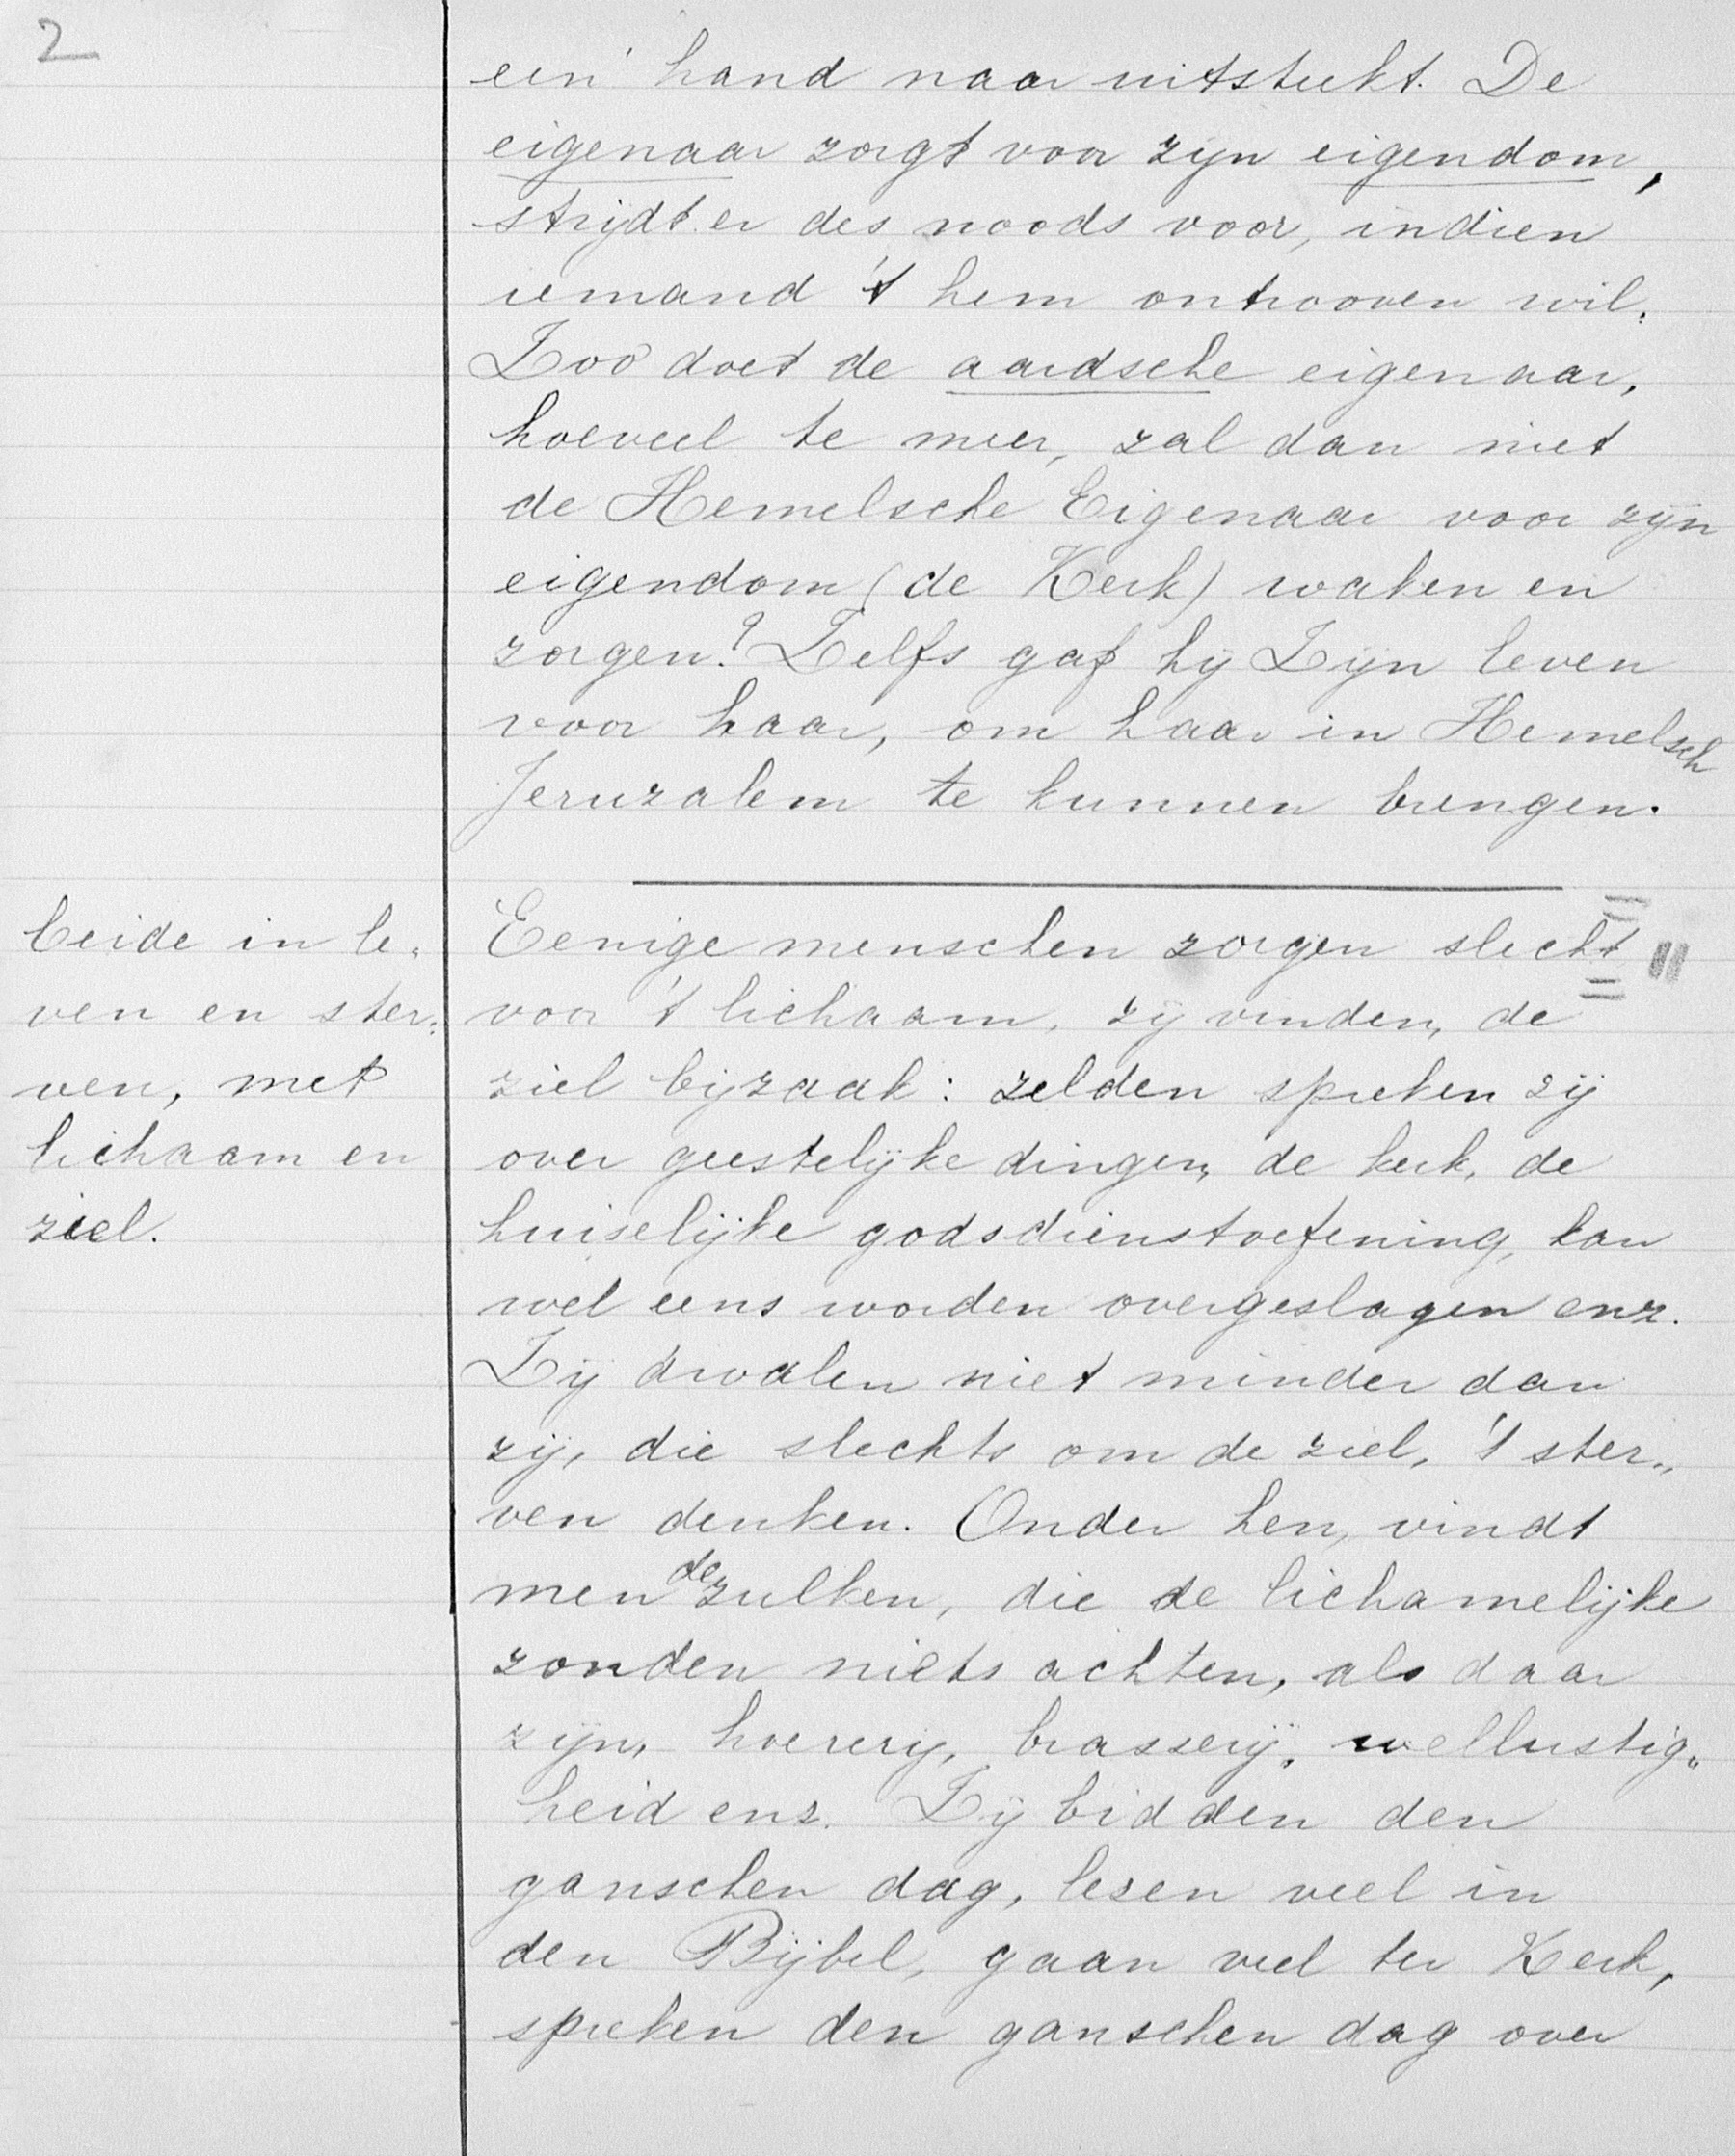 2
een hand naar uitsteekt. De
eigenaar zorgt voor zijn eigendom,
strijdt er des noods voor, indien
iemand 't hem ontrooven wil.
Zoo doet de aardsche eigenaar,
hoeveel te meer, zal dan niet
de Hemelsche Eigenaar voor zijn
eigendom (de Kerk) waken en
zorgen? Zelfs gaf hij Zijn leven
voor haar, om haar in Hemelsch
Jeruzalem te kunnen brengen.
beide in le„
ven en ster„
ven, met
lichaam en
ziel.
Eenige menschen zorgen slecht
voor 't lichaam, zij vinden, de
ziel bijzaak: zelden spreken zij
over geestelijke dingen, de kerk, de
huiselijke godsdienstoefening, kan
wel eens worden overgeslagen enz.
Zij dwalen niet minder dan
zij, die slechts om de ziel, 't ster„
ven denken. Onder hen, vindt
men dezulken, die de lichamelijke
zonden niets achten, als daar
zijn, hoererij, brasserij, wellustig„
heid enz. Zij bidden den
ganschen dag, lezen veel in
den Bijbel, gaan veel ter Kerk,
spreken den ganschen dag over